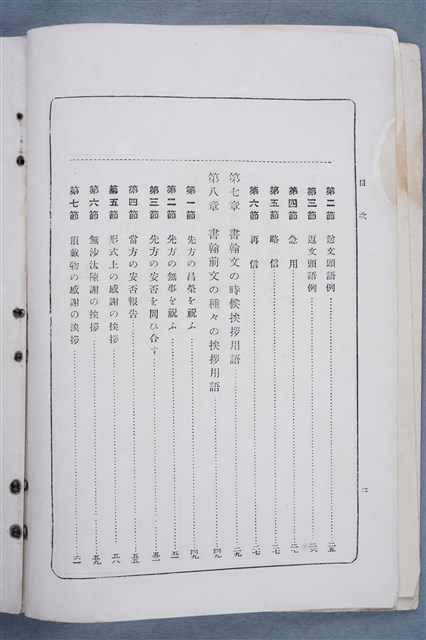 目次
二
第二節 發文頭語例 二五
第三節 返文頭語例 二六
第四節 急用 二七
第五節 略信 二七
第六節 再信 二七
第七章 書翰文の時候挨拶用語 二九
第八章 書翰前文の種々の挨拶用語 四九
第一節 先方の昌榮を祝ふ 四九
第二節 先方の無事を祝ふ 五一
第三節 先方の安否を問ひ合す
第四節 當方の安否報告 五五
第五節 形式上の感謝の挨拶 五八
第六節 無沙汰陳謝の挨拶 五九
第七節 頂戴物の感謝の挨拶 六一